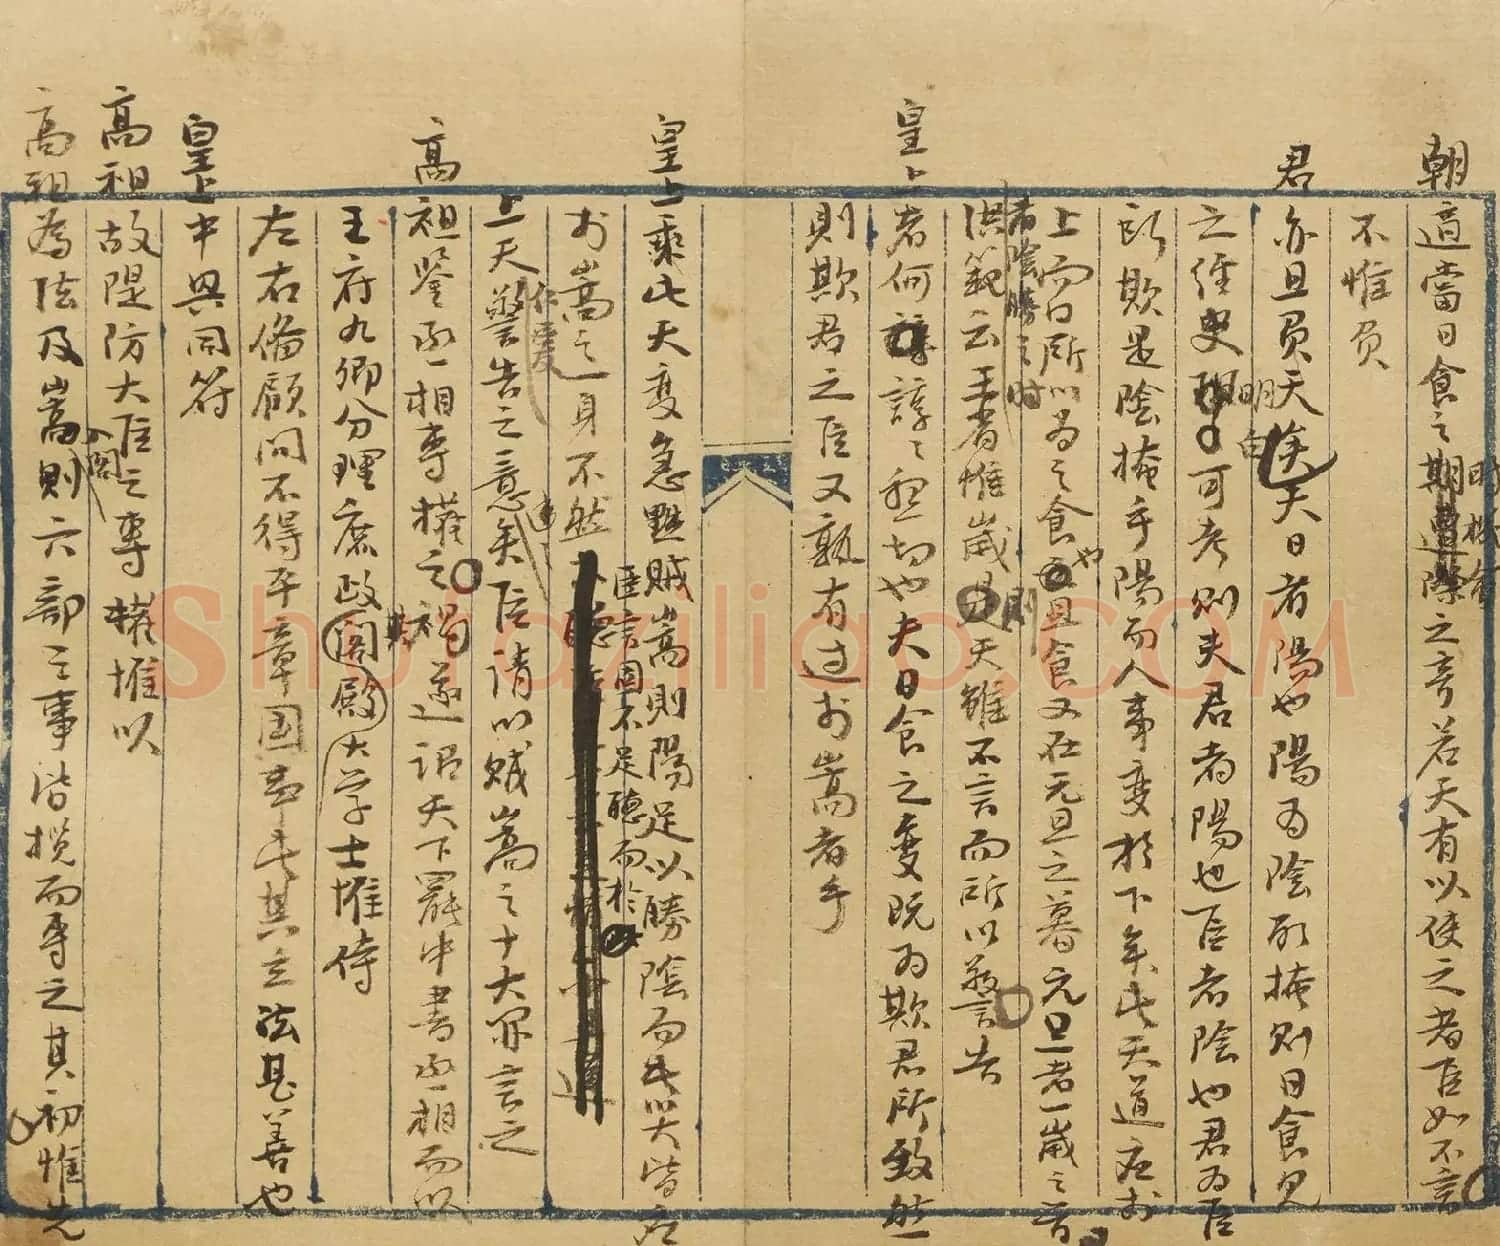 朝適當日食之期遭際之奇若天有以使之者臣如不言
時機會
不惟負
君亦且負天矣夫日者陽也陽為陰所掩則日食見
之經史明白可考則夫君者陽也臣者陰也君為臣
所欺是陰掩乎陽而人事變於下矣此天道應於
上而日所以為之食也且食又在元旦之暮元旦者一歲之首
者陰勝之時
洪範云王者惟歲則天雖不言而所以警告
皇上者何諄諄懇切也夫日食之變既為欺君所致然
則欺君之臣又孰有過於嵩者乎
皇上乘此天變急黜賊嵩則陽足以勝陰而此災皆應
於嵩之一身不然
臣言固不足聽而於
上天警告之意矣臣請以賊嵩之十大罪言之
仁愛
違
高祖鑒丞相專權之禍遂詔天下罷中書丞相而以
其
王府九卿分理庶政閣殿大學士惟侍
左右備顧問不得平章國事此其立法甚善也
皇上中興同符
高祖故隄防大臣之專權惟以
高祖為法及嵩則六部之事皆攬而專之其初惟先
入閣
Shufaziliao.COM